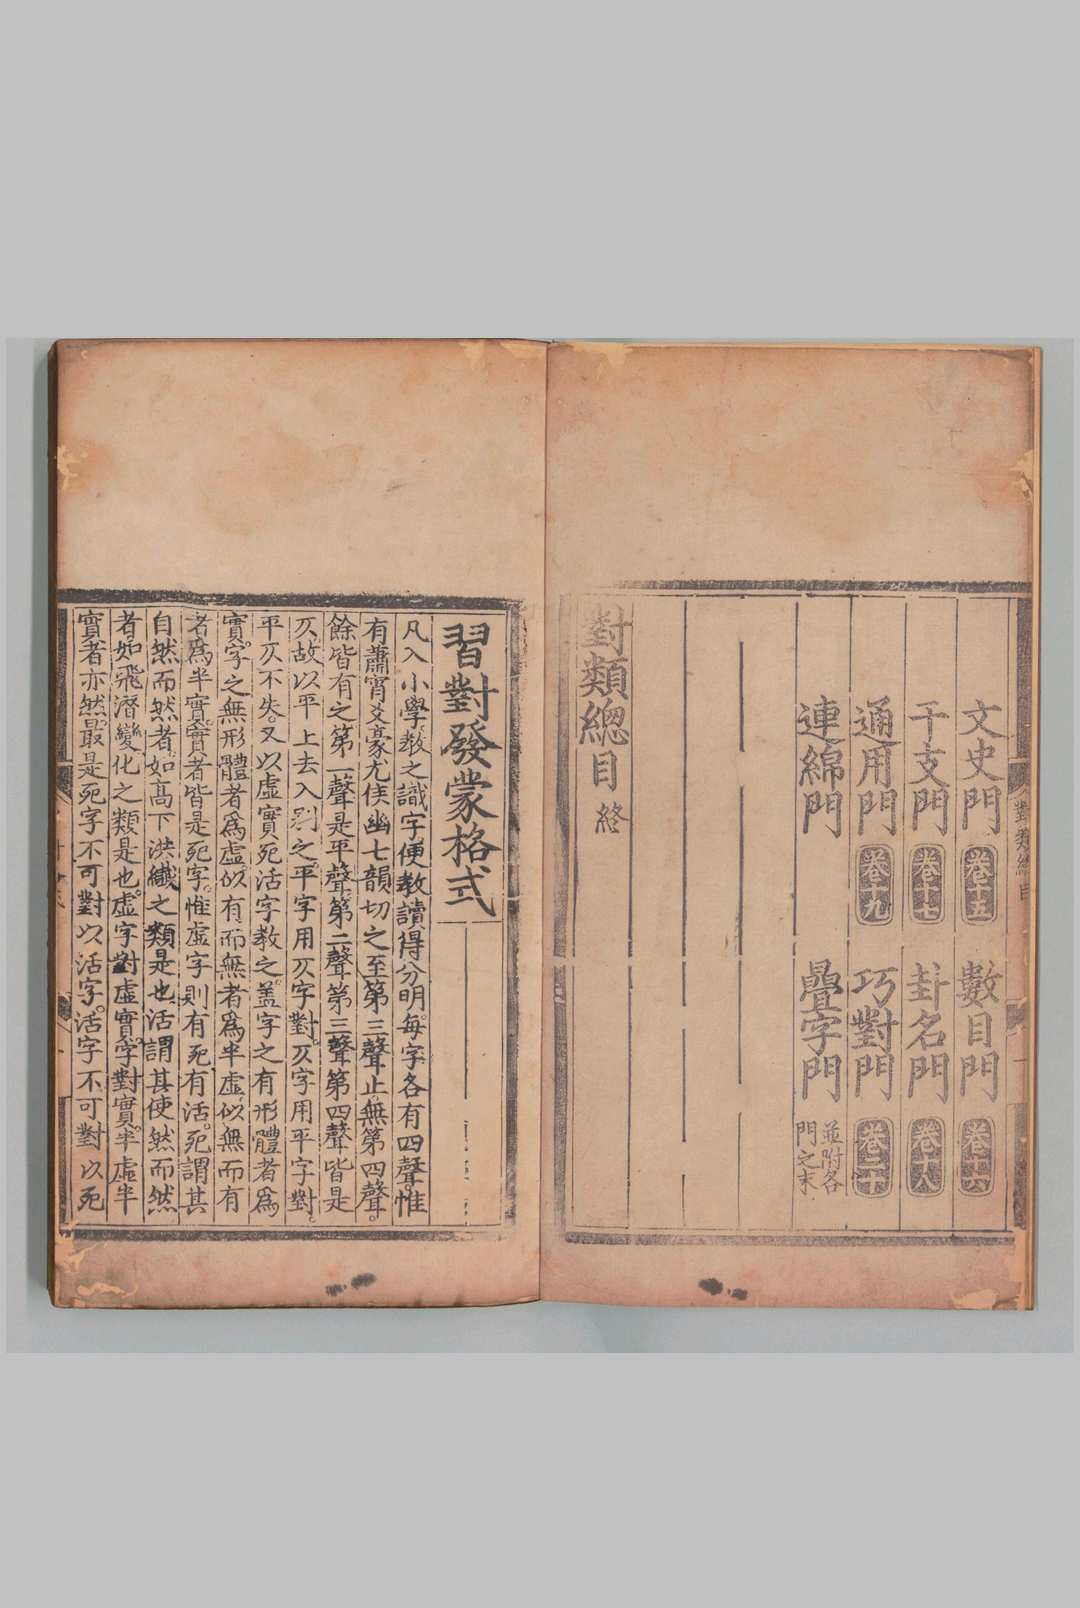 文史門 卷十五 數目門 卷十六
干支門 卷十七 卦名門 卷十八
通用門 卷十九 巧對門 卷二十
連綿門 疊字門 並附各門之末
對類總目 終
習對發蒙格式
凡入小學教之識字便教讀得分明每字各有四聲惟
有蕭宵爻豪尤侯幽七韻切之至第三聲止無第四聲
餘皆有之第一聲是平聲第二聲第三聲第四聲皆是
仄故以平上去入別之平字用仄字對仄字用平字對
平仄不失又以虛實死活字教之蓋字之有形體者爲
實字之無形體者爲虛似有而無者爲半虛似無而有
者爲半實實者皆是死字惟虛字則有死有活死謂其
自然而然者如高下洪纖之類是也活謂其使然而然
者如飛潛變化之類是也虛字對虛實字對實半虛半
實者亦然最是死字不可對以活字活字不可對以死